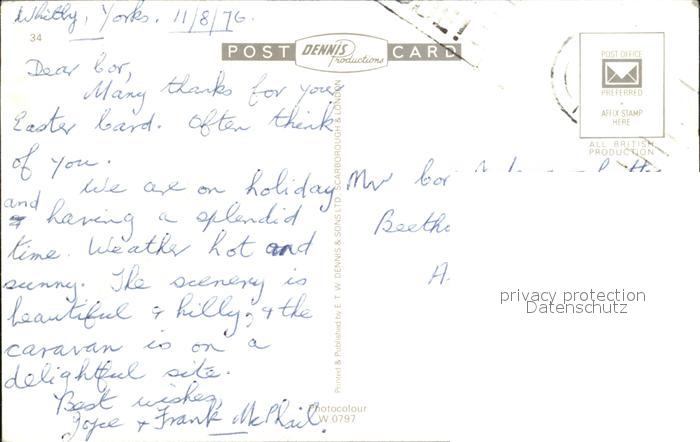 Whitby, Yorks. 11/8/76.
34
POST DENNIS Productions CARD
POST OFFICE
PREFERRED
AFFIX STAMP
HERE
ALL BRITISH
PRODUCTION
Dear Cor,
Many thanks for your
Easter Card. Often think
of you.
We are on holiday
and having a splendid
time. Weather hot and
sunny. The scenery is
beautiful & hilly, & the
caravan is on a
delightful site.
Best wishes,
Joyce & Frank McPhail.
Printed & Published by E. T. W. DENNIS & SONS LTD. SCARBOROUGH & LONDON
Photocolour
W 0797
Mr Cor
Beetho
A.
privacy protection
Datenschutz